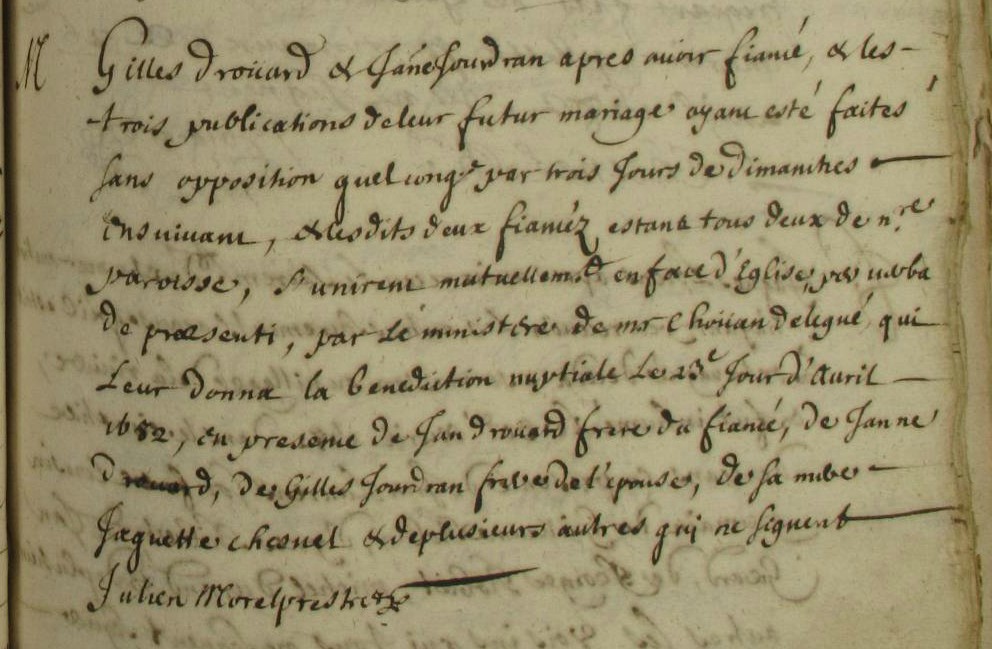 M Gilles drouard & Janne Jourdran apres auoir fiancé, & les
trois publications de leur futur mariage ayant esté faites
sans opposition quelconq. par trois Jours de dimanches
ensuiuant, & lesdits deux fiancéz estant tous deux de nre
paroisse, s'unirent mutuellemt. en face d'Eglise, per verba
de præsenti, par Le ministere de mr Choüan délegué qui
Leur donna la benediction nuptiale Le 23e Jour d'Auril
1682, en presence de Jan drouard frere du fiancé, de Janne
drouard, de Gilles Jourdran frere de l'épouse, de sa mere
Jaquette chesnel & de plusieurs autres qui ne signent
Julien Morel prestre